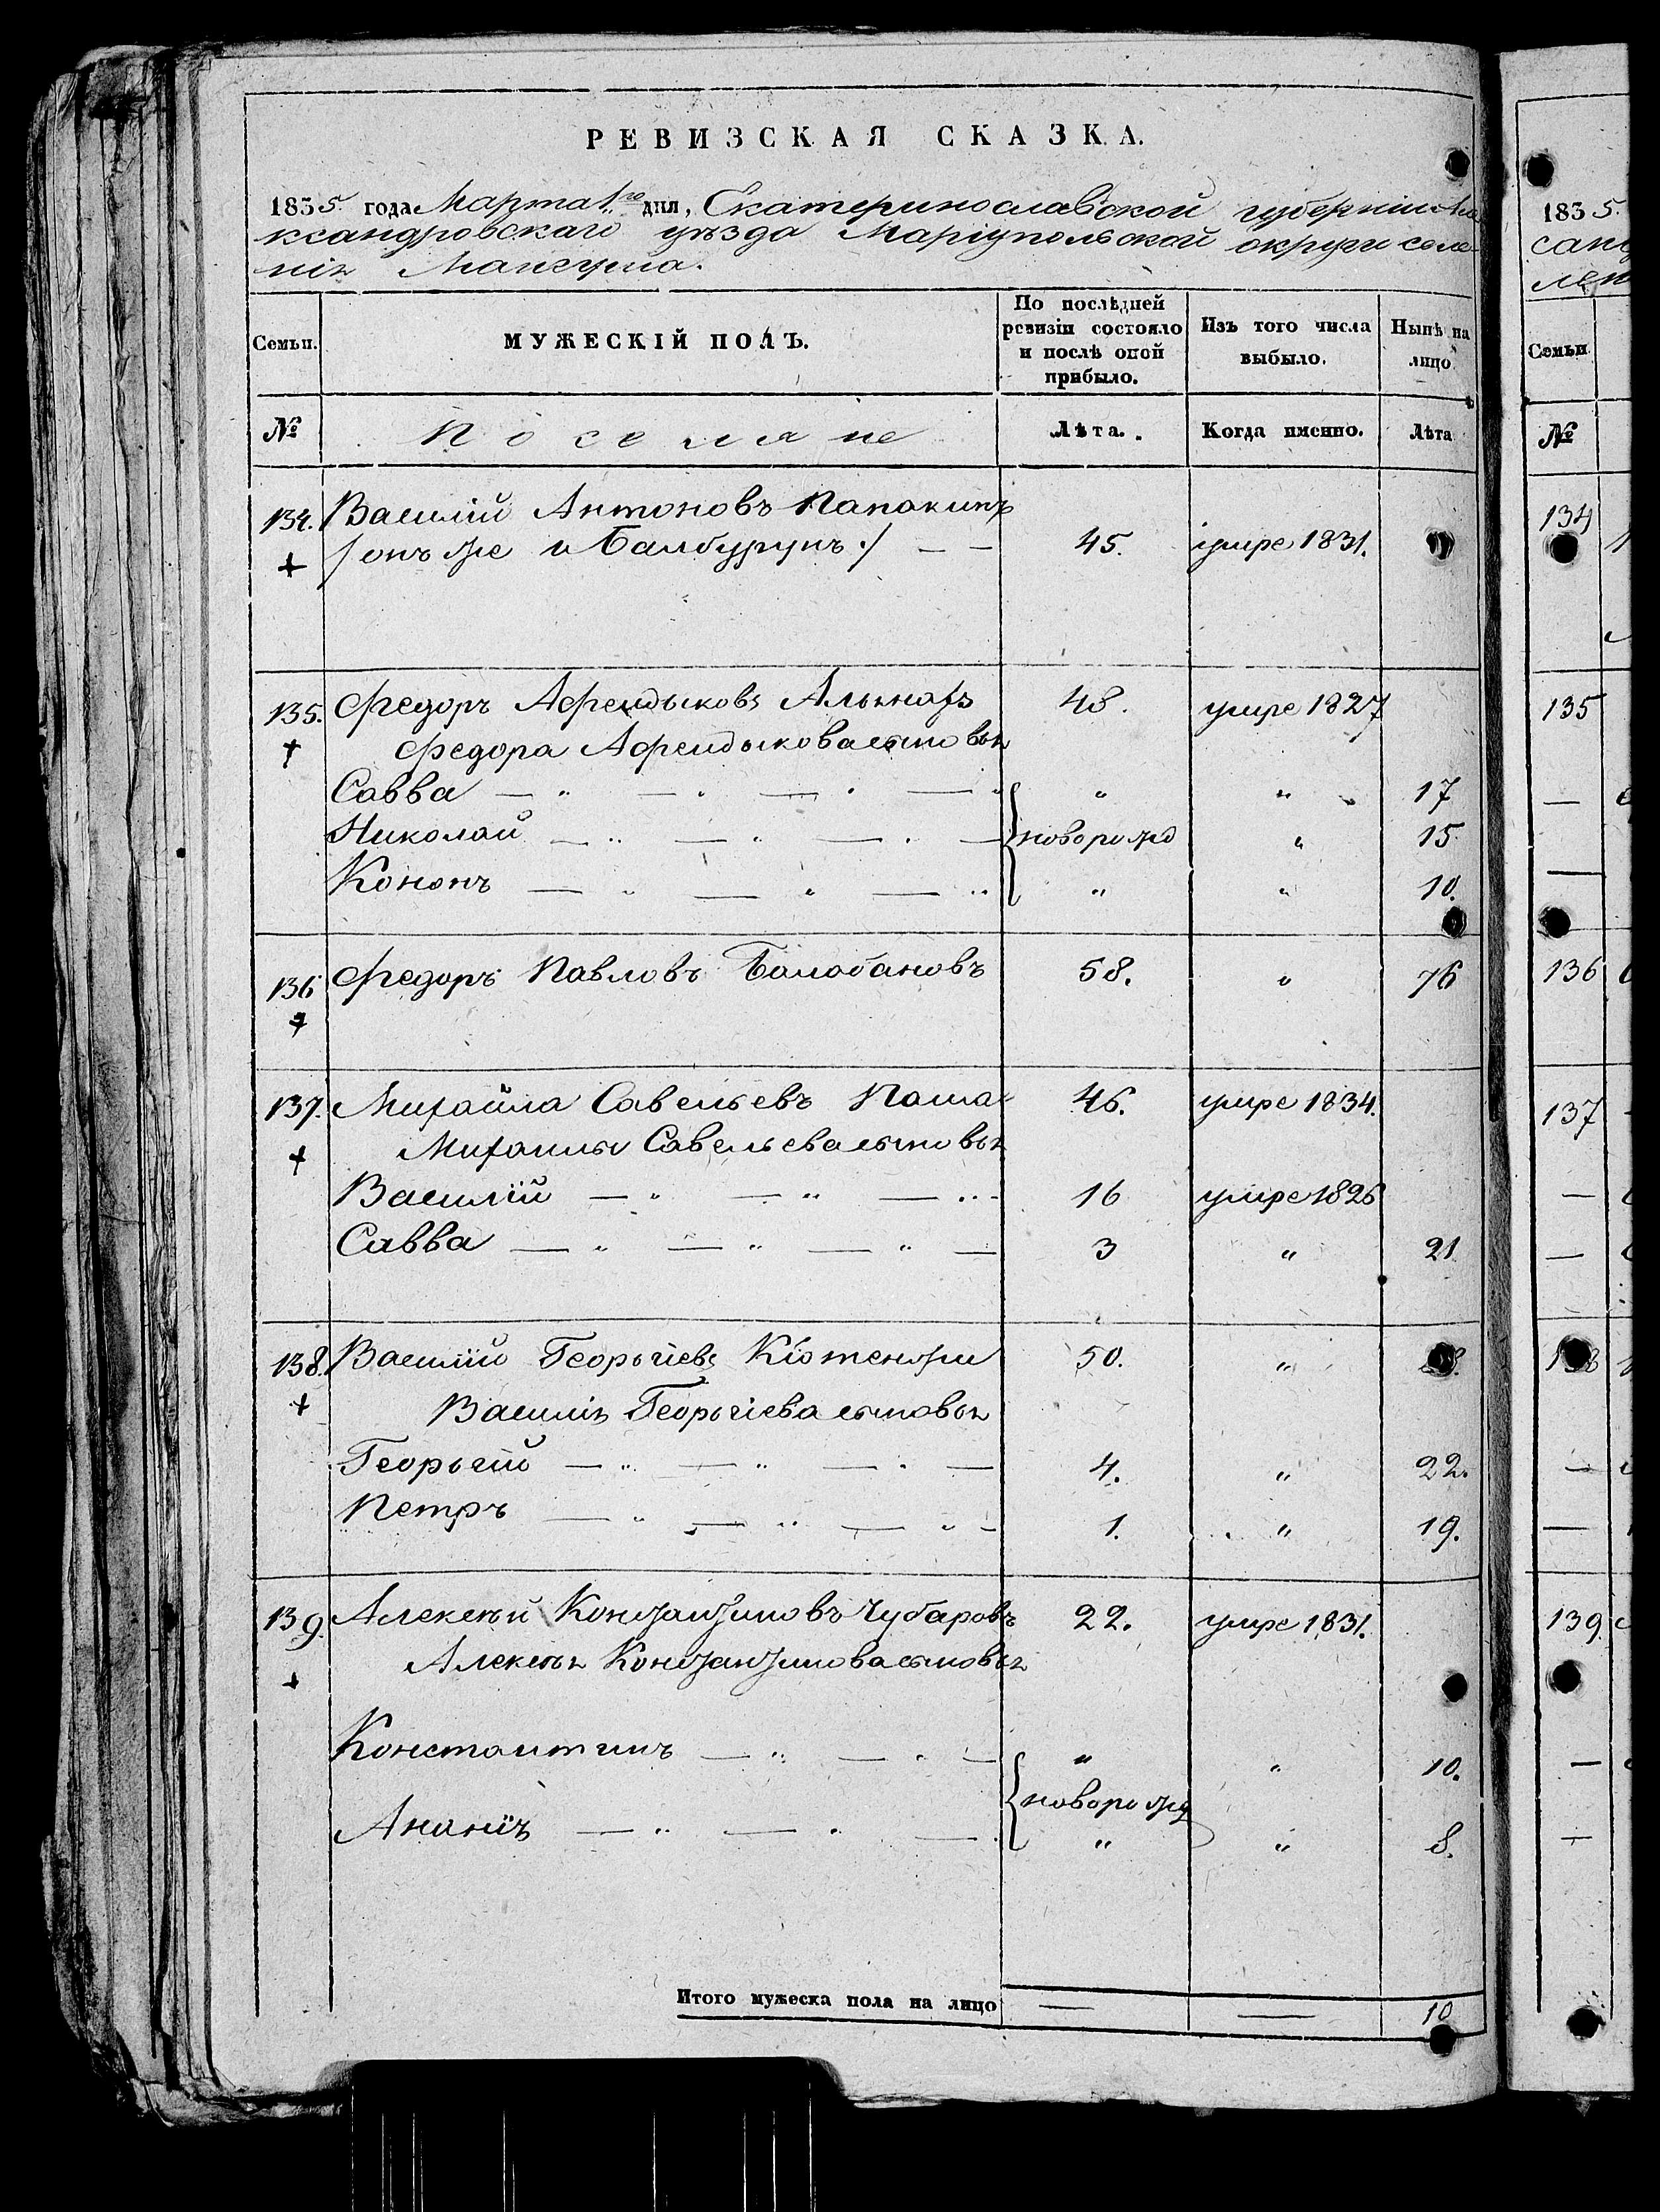 РЕВИЗСКАЯ СКАЗКА.
1835 года Марта 1го дня, Екатеринославской губерніи Але
ксандровскаго уѣзда Маріупольской округи селе-
нія Мангуша.
Семьи.
МУЖЕСКІЙ ПОЛЪ.
По послѣдней ревизіи состояло и послѣ оной прибыло.
Изъ того числа выбыло.
Нынѣ на лицо
№ Поселяне Лѣта. Когда именно. Лѣта
134. Василій Антоновъ Папакинъ
/онъ же и Балбурунъ./ — — 45. умре 1831.
135. Федоръ Афендыковъ 48. умре 1827
Федора Афендыкова сыновья
Савва — „ — „ — „ — „ „ „ 17
Николай — „ — „ — „ — новорожд „ 15.
Кононъ — „ — „ — „ „ „ 10.
136 Федоръ Павловъ Балабановъ 58. „ 76
137. Михайла Савельевъ Паша 46. умре 1834.
Михаилы Савельева сыновья
Василій — „ — „ — „ 16 умре 1826
Савва — „ — „ — „ — 3 „ 21
138. Василій Георьгіевъ Кіотенжи 50. „
Василія Георьгіева сыновья
Георьгій — „ — „ — „ — 4. „ 22.
Петръ — „ — „ — „ — 1. „ 19.
139. Алексѣй Константиновъ Чубаровъ 22. умре 1831.
Алексѣя Константинова сыновья
Константинъ — „ — „ — „ „ 10.
новорожд
Ананія — „ — „ — „ „ „ 8.
Итого мужеска пола на лицо — — 10
1835.
Семьи
№
134
135
136
137
139.